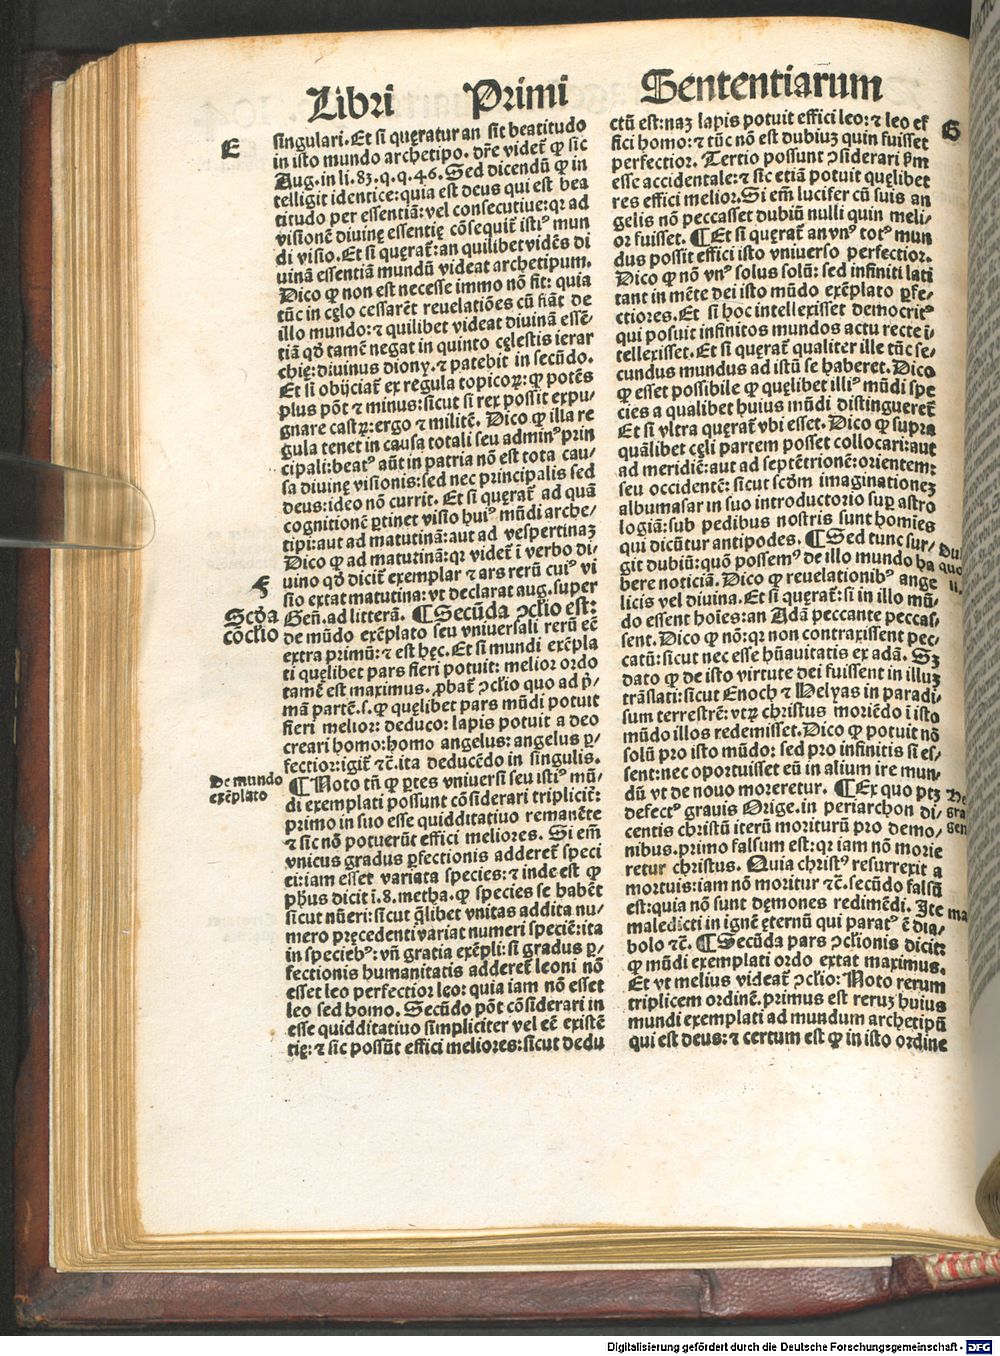 Libri Primi Sententiarum
E
singulari. Et si quęratur an sit beatitudo
in isto mundo archetipo. dr̄e videt᷑ ꝙ sic
Aug. in li. 83. q. q. 46. Sed dicendū ꝙ in
telligit identice: quia est deus qui est bea
titudo per essentiā: vel consecutiue: qꝛ ad
visionē diuinę essentię cōsequit᷑ istiꝰ mun
di visio. Et si quęrat᷑: an quilibet vidēs di
uinā essentiā mundū videat archetipum.
Dico ꝙ non est necesse immo nō fit: quia
tūc in cęlo cessarēt reuelatiōes cū fiāt de
illo mundo: ⁊ quilibet videat diuinā essē-
tiā qd̄ tamē negat in quinto cęlestis ierar
chię: diuinus diony. ⁊ patebit in secūdo.
Et si obijciat᷑ ex regula topicoꝝ: ꝙ potēs
plus pōt ⁊ minus: sicut si rex possit expu-
gnare castꝝ: ergo ⁊ militē. Dico ꝙ illa re
gula tenet in causa totali seu adminꝰ prin
cipali: beatꝰ aūt in patria nō est tota cau-
sa diuinę visionis: sed nec principalis sed
deus: ideo nō currit. Et si quęrat᷑ ad quā
cognitionē ꝑtinet visio huiꝰ mūdi arche-
tipi: aut ad matutinā: aut ad vespertinaꝫ
Dico ꝙ ad matutinā: qꝛ videt᷑ ī verbo di-
uino qd̄ dicit᷑ exemplar ⁊ ars rerū cuiꝰ vi
F
sio extat matutina: vt declarat aug. super
Scd̄a
coc̄lio
Geñ. ad litterā. ¶ Secūda ↄclio est:
de mūdo exēplato seu vniuersali rerū eē
extra primū: ⁊ est hęc. Et si mundi exēpla
ti quęlibet pars fieri potuit melior ordo
tamē est maximus. ꝓbat᷑ ↄclio quo ad pͥ-
mā partē. s. ꝙ quęlibet pars mūdi potuit
fieri melior: deduco: lapis potuit a deo
creari homo: homo angelus: angelus ꝑ-
fectior: igit᷑ ⁊c̄. ita deducēdo in singulis.
De mundo
exēplato
¶ Noto tn̄ ꝙ ꝑtes vniuersi seu istiꝰ mū-
di exemplati possunt cōsiderari triplicit᷑:
primo in suo esse quidditatiuo remanēte
⁊ sic nō potuerūt effici meliores. Si em̄
vnicus gradus ꝑfectionis adderet᷑ speci
ei: iam esset variata species: ⁊ inde est ꝙ
ph̄us dicit ī. 8. metha. ꝙ species se habēt
sicut nūeri: sicut q̄libet vnitas addita nu-
mero pręcedenti variat numeri speciē: ita
in speciebꝰ: vn̄ gratia exēpli: si gradus ꝑ-
fectionis humanitatis adderet᷑ leoni nō
esset leo perfectior leo: quia iam nō esset
leo sed homo. Secūdo pōt cōsiderari in
esse quidditatiuo simpliciter vel eē existē
tię: ⁊ sic possūt effici meliores: sicut dedu
ctū est: naꝫ lapis potuit effici leo: ⁊ leo ef
G
fici homo: ⁊ tūc nō est dubiuꝫ quin fuisset
perfectior. Tertio possunt ↄsiderari ẜm
esse accidentale: ⁊ sic etiā potuit quęlibet
res effici melior. Si em̄ lucifer cū suis an
gelis nō peccasset dubiū nulli quin meli-
or fuisset. ¶ Et si quęrat᷑ an vnꝰ totꝰ mun
dus possit effici isto vniuerso perfectior.
Dico ꝙ nō vnꝰ solus solū: sed infiniti lati
tant in mēte dei isto mūdo exēplato ꝑfe-
ctiores. Et si hoc intellexisset democritꝰ
qui posuit infinitos mundos actu recte ī-
tellexisset. Et si quęrat᷑ qualiter ille tūc se-
cundus mundus ad istū se haberet. Dico
ꝙ esset possibile ꝙ quęlibet illiꝰ mūdi spe
cies a qualibet huius mūdi distingueret᷑
Et si vltra quęrat᷑ vbi esset. Dico ꝙ supra
quālibet cęli partem posset collocari: aut
ad meridiē: aut ad septētrionē: orientem:
seu occidentē: sicut scd̄m imaginationeꝫ
albumasar in suo introductorio suꝑ astro
logiā: sub pedibus nostris sunt homīes
qui dicūtur antipodes. ¶ Sed tunc sur-
Du
git dubiū: quō possemꝰ de illo mundo ha
quo
bere noticiā. Dico ꝙ reuelationibꝰ ange
licis vel diuina. Et si quęrat᷑: si in illo mū-
do essent hoīes: an Adā peccante peccas-
sent. Dico ꝙ nō: qꝛ non contraxissent pec-
catū: sicut nec esse hūauitatis ex adā. Sꝫ
dato ꝙ de isto virtute dei fuissent in illuꝫ
trāslati: sicut Enoch ⁊ Helyas in paradi-
sum terrestrē: vtꝝ christus moriēdo ī isto
mūdo illos redemisset. Dico ꝙ potuit nō
solū pro isto mūdo: sed pro infinitis si es-
sent: nec oportuisset eū in alium ire mun-
dū vt de nouo moreretur. ¶ Ex quo ptꝫ
defectꝰ grauis Orige. in periarchon di-
centis christū iterū moriturū pro demo-
nibus. primo falsum est: qꝛ iam nō morie
retur christus. Quia christꝰ resurrexit a
mortuis: iam nō moritur ⁊c̄. secūdo falsū
est: quia nō sunt dęmones redimēdi. Ite ma
maledicti in ignē ęternū qui paratꝰ ē dia-
bolo ⁊c̄. ¶ Secūda pars ↄclionis dicit:
ꝙ mūdi exemplati ordo extat maximus.
Et vt melius videat᷑ ↄclio: Noto rerum
triplicem ordinē. primus est reruꝫ huius
mundi exemplati ad mundum archetipū
qui est deus: ⁊ certum est ꝙ in isto ordine
Digitalisierung gefördert durch die Deutsche Forschungsgemeinschaft - DFG